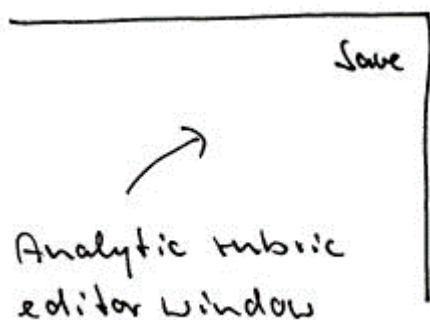 Save
Analytic rubric
editor window